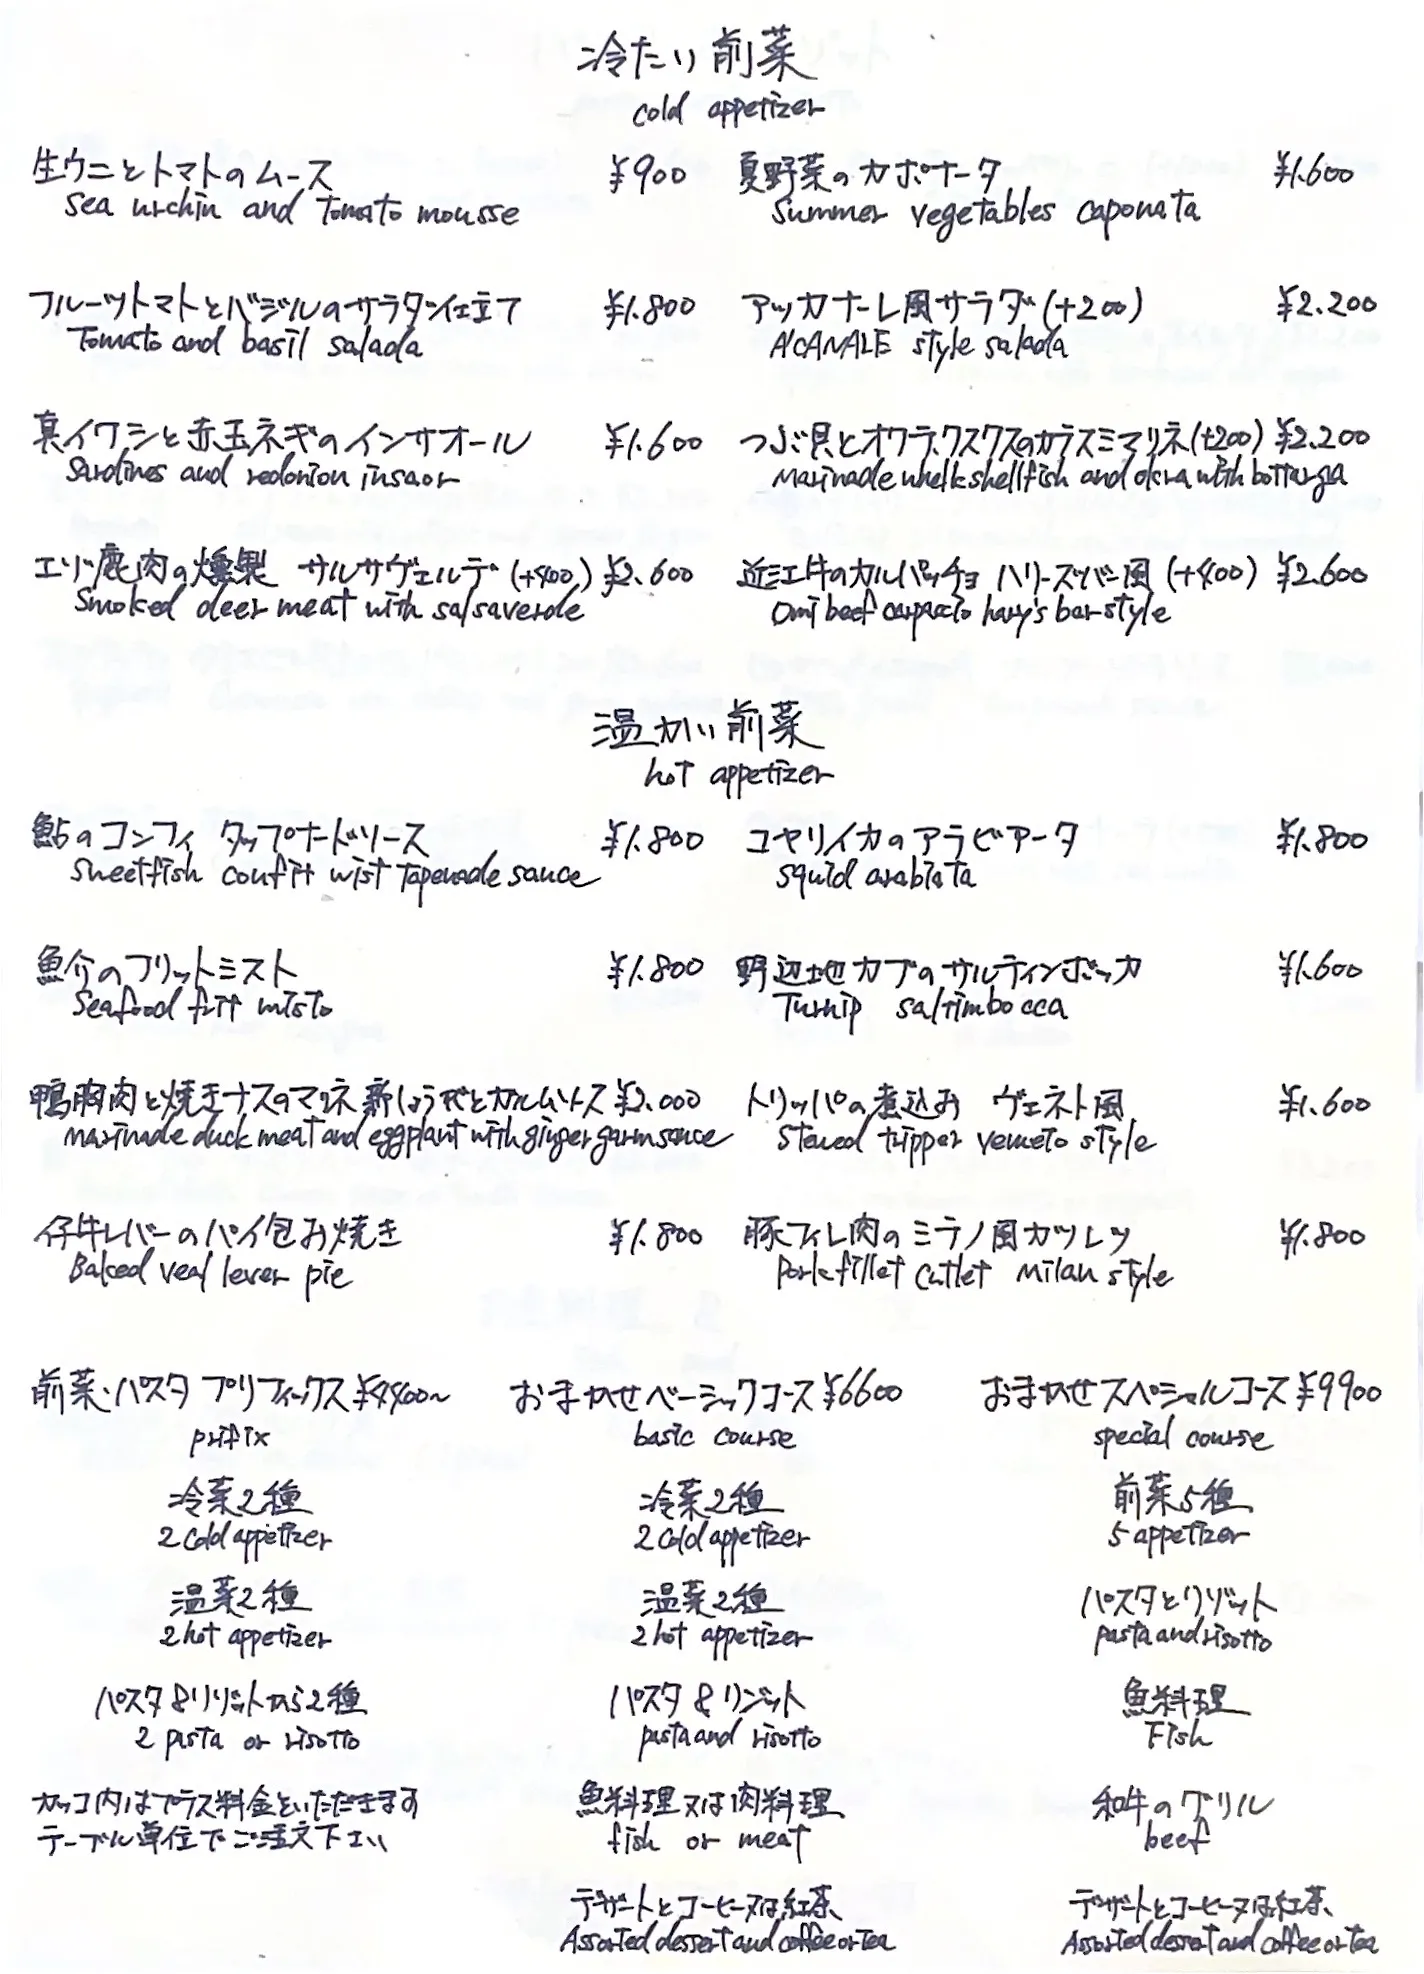 冷たい前菜
cold appetizer
生ウニとトマトのムース ¥900
Sea urchin and tomato mousse
夏野菜のカポナータ ¥1.600
Summer vegetables caponata
フルーツトマトとバジルのサラダ仕立て ¥1.800
Tomato and basil salada
アッカナーレ風サラダ(+200) ¥2.200
A'CANALE style salada
真イワシと赤玉ネギのインサオール ¥1.600
Sardines and redonion insaor
つぶ貝とオクラ、クスクスのカラスミマリネ(+200) ¥2.200
Marinade whelkshellfish and okra with bottarga
エゾ鹿肉の燻製 サルサヴェルデ(+400) ¥2.600
Smoked deer meat with salsaverde
近江牛のカルパッチョ ハリーズバー風(+400) ¥2.600
Omi beef carpaccio hary's bar style
温かい前菜
hot appetizer
鮎のコンフィ タップナードソース ¥1.800
Sweetfish confit wist tapenade sauce
コヤリイカのアラビアータ ¥1.800
Squid arabiata
魚介のフリットミスト ¥1.800
Seafood frit misto
野辺地カブのサルティンボッカ ¥1.600
Turnip saltimbocca
鴨胸肉と焼きナスのマリネ 新しょうがとガルムソース ¥2.000
Marinade duck meat and eggplant with ginger garmsauce
トリッパの煮込み ヴェネト風 ¥1.600
Stewed tripper veneto style
仔牛レバーのパイ包み焼き ¥1.800
Baked veal lever pie
豚フィレ肉のミラノ風カツレツ ¥1.800
Pork fillet cutlet milan style
前菜・パスタ プリフィックス ¥4400〜
prifix
冷菜2種
2 cold appetizer
温菜2種
2 hot appetizer
パスタ&リゾットから2種
2 pasta or risotto
カッコ内はプラス料金といただきます
テーブル単位でご注文下さい
おまかせベーシックコース ¥6600
basic course
冷菜2種
2 cold appetizer
温菜2種
2 hot appetizer
パスタ&リゾット
pasta and risotto
魚料理又は肉料理
fish or meat
デザートとコーヒー又は紅茶
Assorted dessert and coffee or tea
おまかせスペシャルコース ¥9900
special course
前菜5種
5 appetizer
パスタとリゾット
pasta and risotto
魚料理
Fish
和牛のグリル
beef
デザートとコーヒー又は紅茶
Assorted dessert and coffee or tea